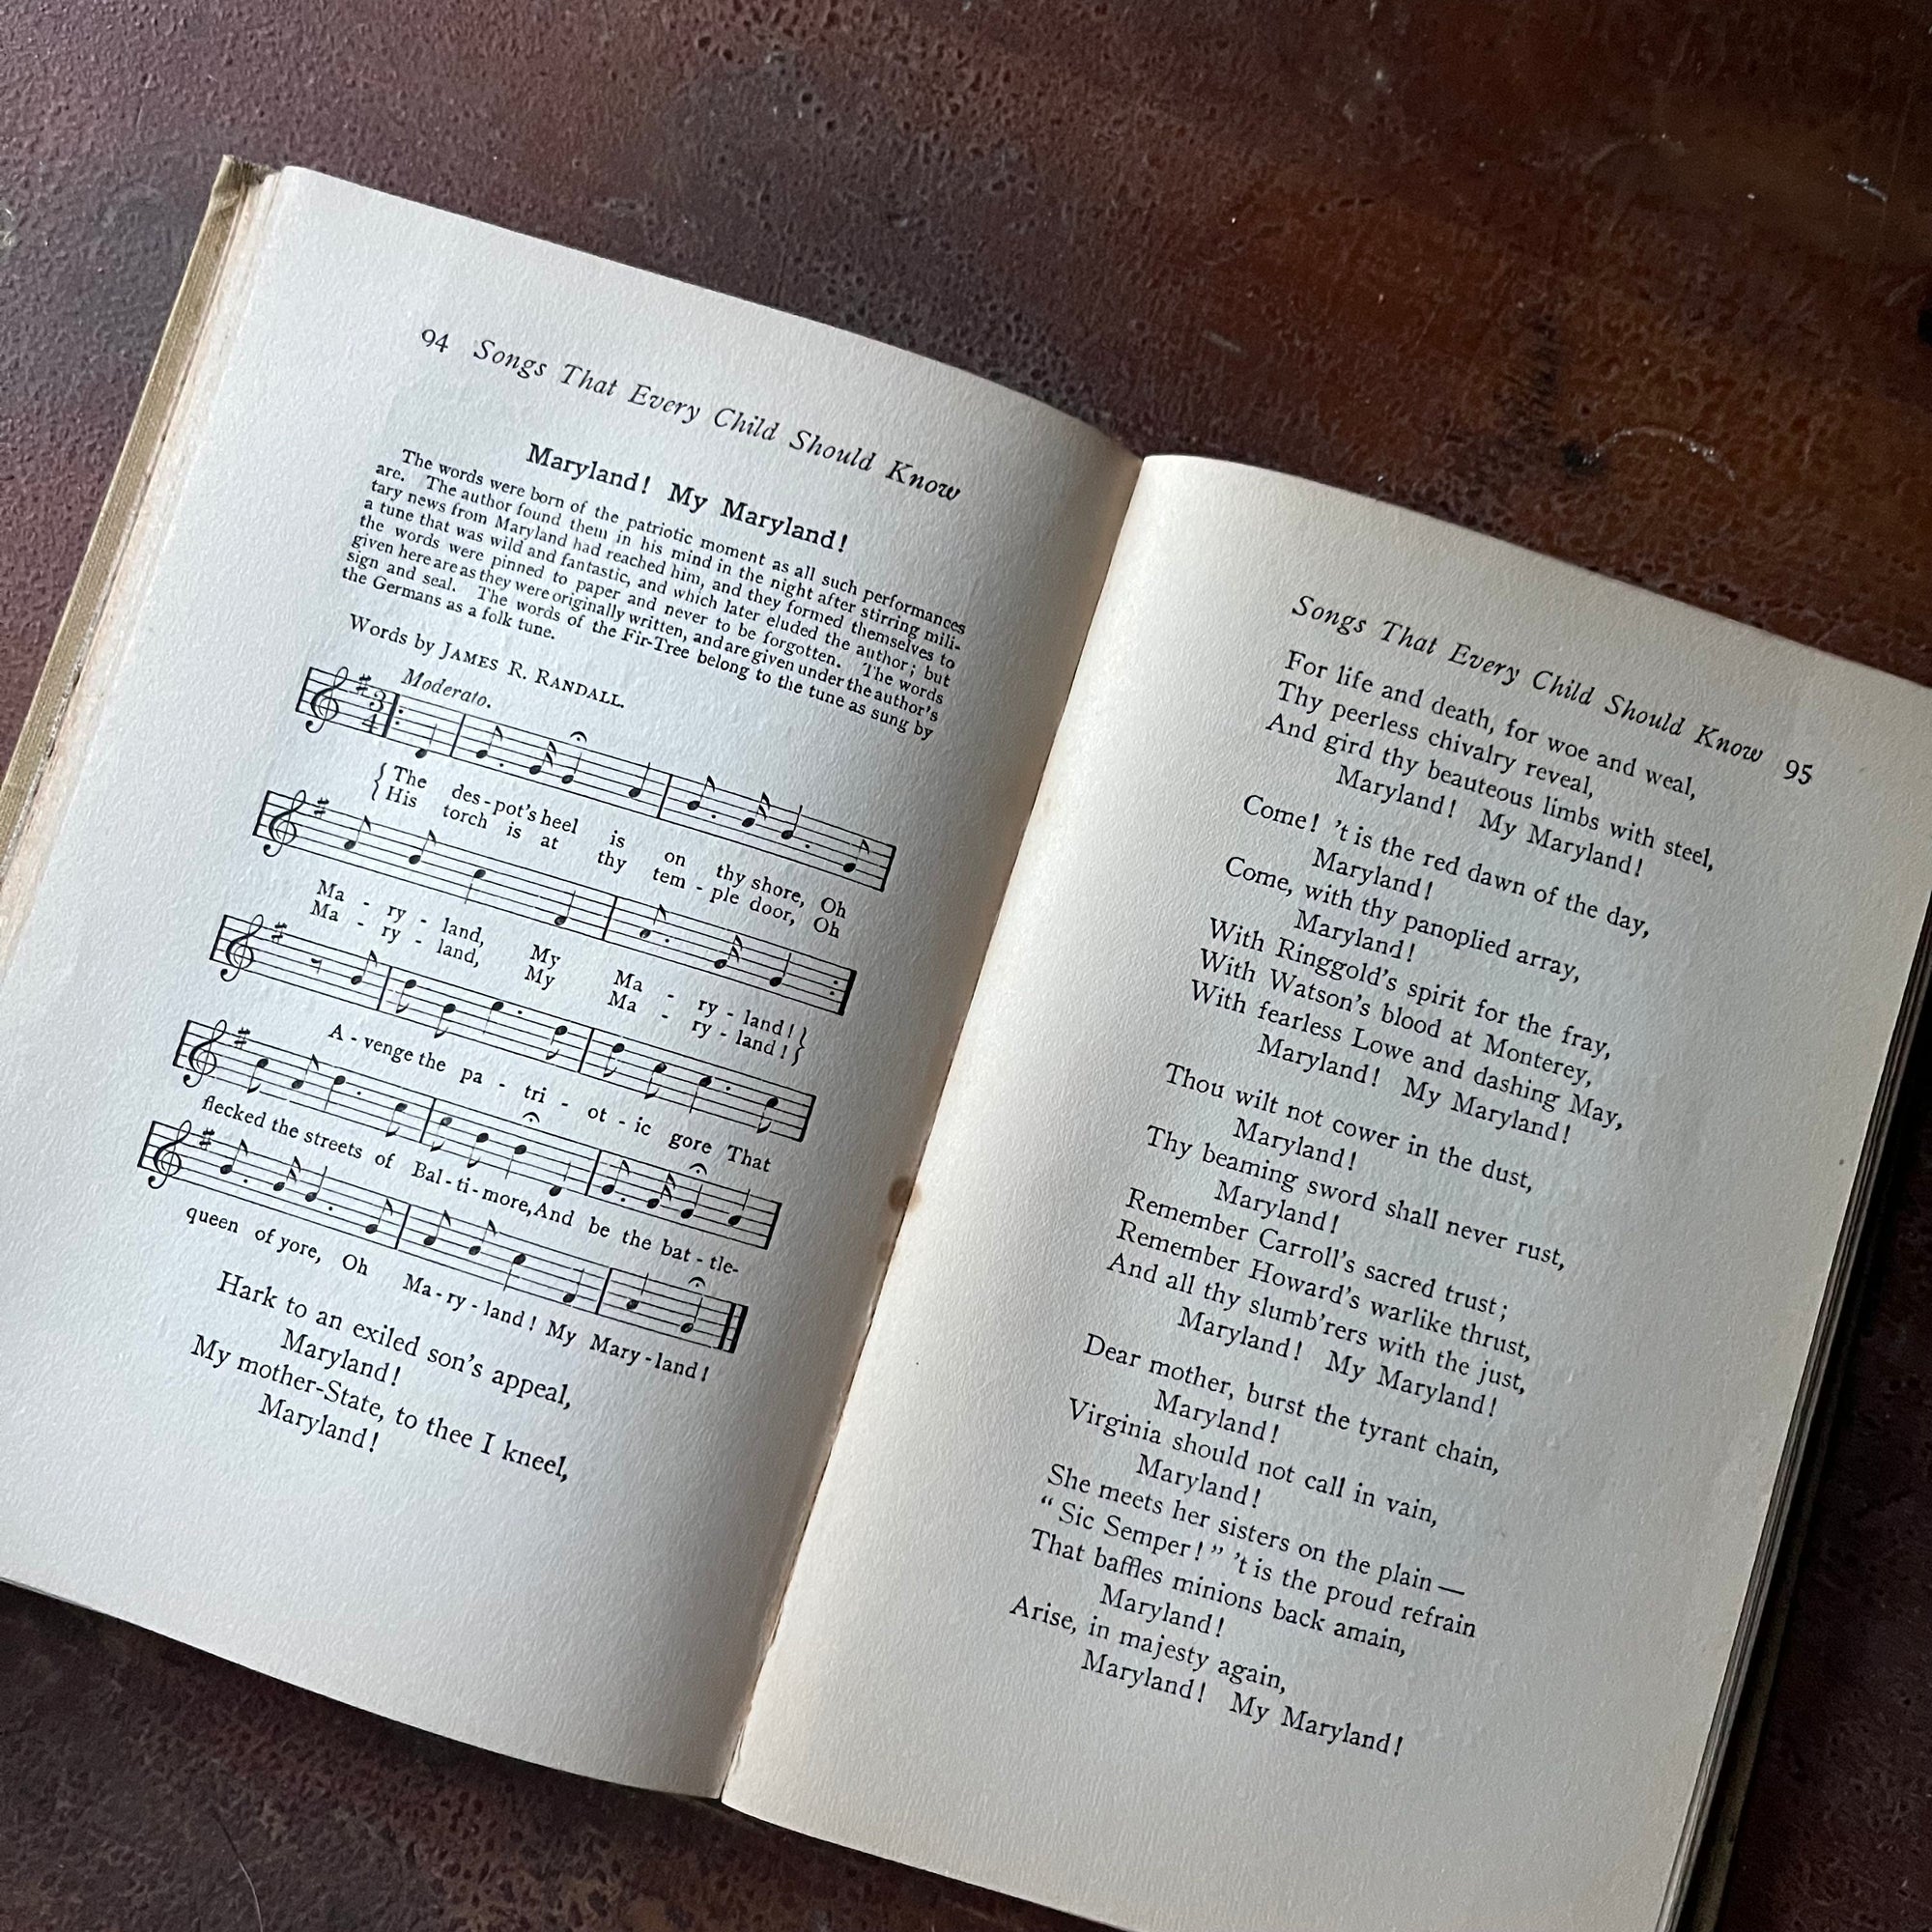 94 Songs That Every Child Should Know
Maryland! My Maryland!
The words were born of the patriotic moment as all such performances
are. The author found them in his mind in the night after stirring mili-
tary news from Maryland had reached him, and they formed themselves to
a tune that was wild and fantastic, and which later eluded the author; but
the words were pinned to paper and never to be forgotten. The words
given here are as they were originally written, and are given under the author's
sign and seal. The words of the Fir-Tree belong to the tune as sung by
the Germans as a folk tune.
Words by JAMES R. RANDALL.
Moderato.
3
4
{ The des-pot's heel is on thy shore, Oh
{ His torch is at thy tem - ple door, Oh
Ma - ry - land, My Ma - ry - land! }
Ma - ry - land, My Ma - ry - land! }
A - venge the pa - tri - ot - ic gore That
flecked the streets of Bal - ti - more, And be the bat - tle-
queen of yore, Oh Ma - ry - land! My Mary - land!
Hark to an exiled son's appeal,
Maryland!
My mother-State, to thee I kneel,
Maryland!
Songs That Every Child Should Know 95
For life and death, for woe and weal,
Thy peerless chivalry reveal,
And gird thy beauteous limbs with steel,
Maryland! My Maryland!
Come! 't is the red dawn of the day,
Maryland!
Come, with thy panoplied array,
Maryland!
With Ringgold's spirit for the fray,
With Watson's blood at Monterey,
With fearless Lowe and dashing May,
Maryland! My Maryland!
Thou wilt not cower in the dust,
Maryland!
Thy beaming sword shall never rust,
Maryland!
Remember Carroll's sacred trust;
Remember Howard's warlike thrust,
And all thy slumb'rers with the just,
Maryland! My Maryland!
Dear mother, burst the tyrant chain,
Maryland!
Virginia should not call in vain,
Maryland!
She meets her sisters on the plain —
"Sic Semper!" 't is the proud refrain
That baffles minions back amain,
Maryland!
Arise, in majesty again,
Maryland! My Maryland!